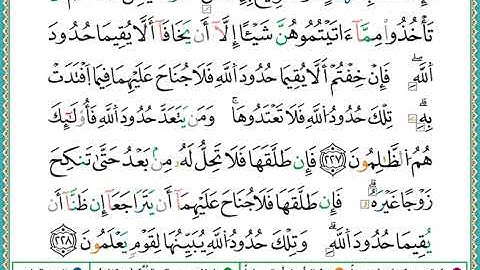 تَأْخُذُوا۟ مِمَّآ ءَاتَيْتُمُوهُنَّ شَيْـًٔا إِلَّآ أَن يَخَافَآ أَلَّا يُقِيمَا حُدُودَ
ٱللَّهِ ۖ فَإِنْ خِفْتُمْ أَلَّا يُقِيمَا حُدُودَ ٱللَّهِ فَلَا جُنَاحَ عَلَيْهِمَا فِيمَا ٱفْتَدَتْ
بِهِۦ ۗ تِلْكَ حُدُودُ ٱللَّهِ فَلَا تَعْتَدُوهَا ۚ وَمَن يَتَعَدَّ حُدُودَ ٱللَّهِ فَأُو۟لَـٰٓئِكَ
هُمُ ٱلظَّـٰلِمُونَ ﴿٢٢٧﴾ فَإِن طَلَّقَهَا فَلَا تَحِلُّ لَهُۥ مِنۢ بَعْدُ حَتَّىٰ تَنكِحَ
زَوْجًا غَيْرَهُۥ ۗ فَإِن طَلَّقَهَا فَلَا جُنَاحَ عَلَيْهِمَآ أَن يَتَرَاجَعَآ إِن ظَنَّآ أَن
يُقِيمَا حُدُودَ ٱللَّهِ ۗ وَتِلْكَ حُدُودُ ٱللَّهِ يُبَيِّنُهَا لِقَوْمٍ يَعْلَمُونَ ﴿٢٢٨﴾